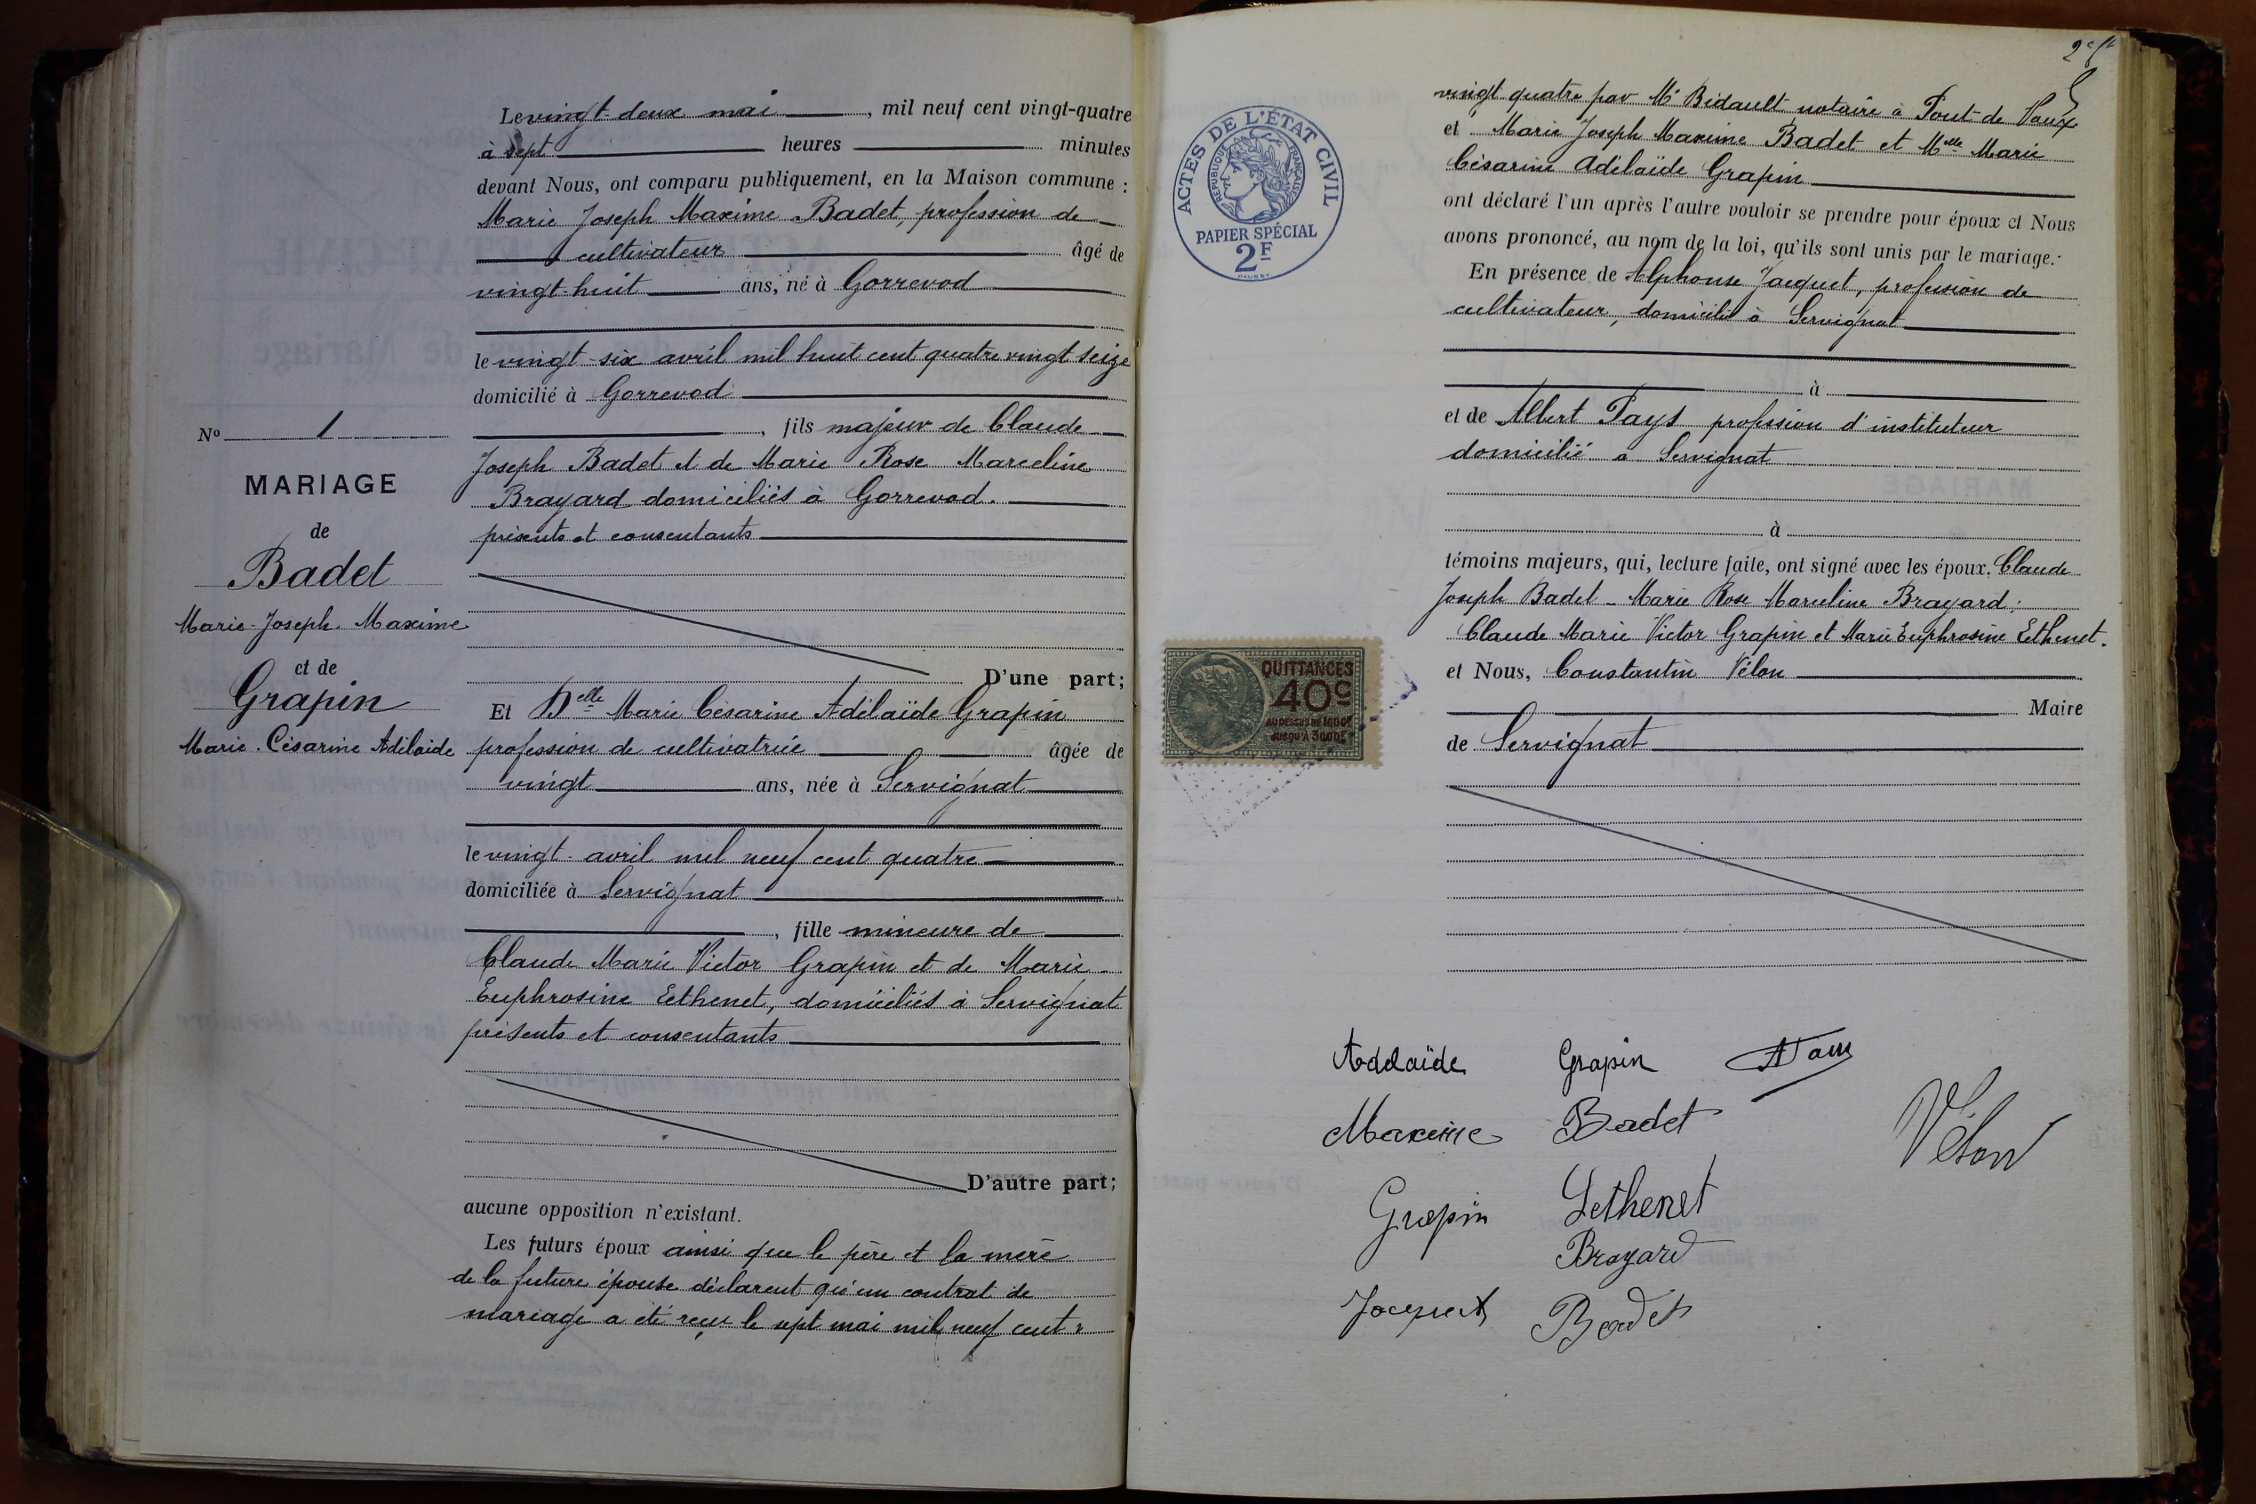 Le vingt-deux mai, mil neuf cent vingt-quatre
à sept heures minutes
devant Nous, ont comparu publiquement, en la Maison commune :
Marie Joseph Maxime Badet, profession de
cultivateur âgé de
vingt-huit ans, né à Gorrevod
le vingt-six avril mil huit cent quatre vingt seize
domicilié à Gorrevod
, fils majeur de Claude
Joseph Badet et de Marie Rose Marceline
Brayard domiciliés à Gorrevod.
présents et consentants
D'une part;
Et Delle Marie Césarine Adélaïde Grapin
profession de cultivatrice âgée de
vingt ans, née à Servignat
le vingt avril mil neuf cent quatre
domiciliée à Servignat
, fille mineure de
Claude Marie Victor Grapin et de Marie
Euphrosine Lethenet, domiciliés à Servignat
présents et consentants
D'autre part;
aucune opposition n'existant.
Les futurs époux ainsi que le père et la mère
de la future épouse déclarent qu'un contrat de
mariage a été reçu le sept mai mil neuf cent
No 1
MARIAGE
de
Badet
Marie-Joseph-Maxime
et de
Grapin
Marie-Césarine Adélaïde
vingt quatre par Me Bidault notaire à Pont-de-Vaux
et Marie Joseph Maxime Badet et Melle Marie
Césarine Adélaïde Grapin
ont déclaré l'un après l'autre vouloir se prendre pour époux et Nous
avons prononcé, au nom de la loi, qu'ils sont unis par le mariage.
En présence de Alphonse Jacquet, profession de
cultivateur, domicilié à Servignat
à
et de Albert Pays profession d'instituteur
domicilié à Servignat
à
témoins majeurs, qui, lecture faite, ont signé avec les époux. Claude
Joseph Badet - Marie Rose Marceline Brayard.
Claude Marie Victor Grapin et Marie Euphrosine Lethenet.
et Nous, Constantin Vélon
Maire
de Servignat
ACTES DE L'ÉTAT CIVIL
RÉPUBLIQUE FRANÇAISE
PAPIER SPÉCIAL
2F
QUITTANCES
40c
AU DESSUS DE 1000F
JUSQU'À 3000F
Adelaïde Grapin
Maxime Badet
Vélon
Grapin Lethenet
Brayard
Jacquet Badet